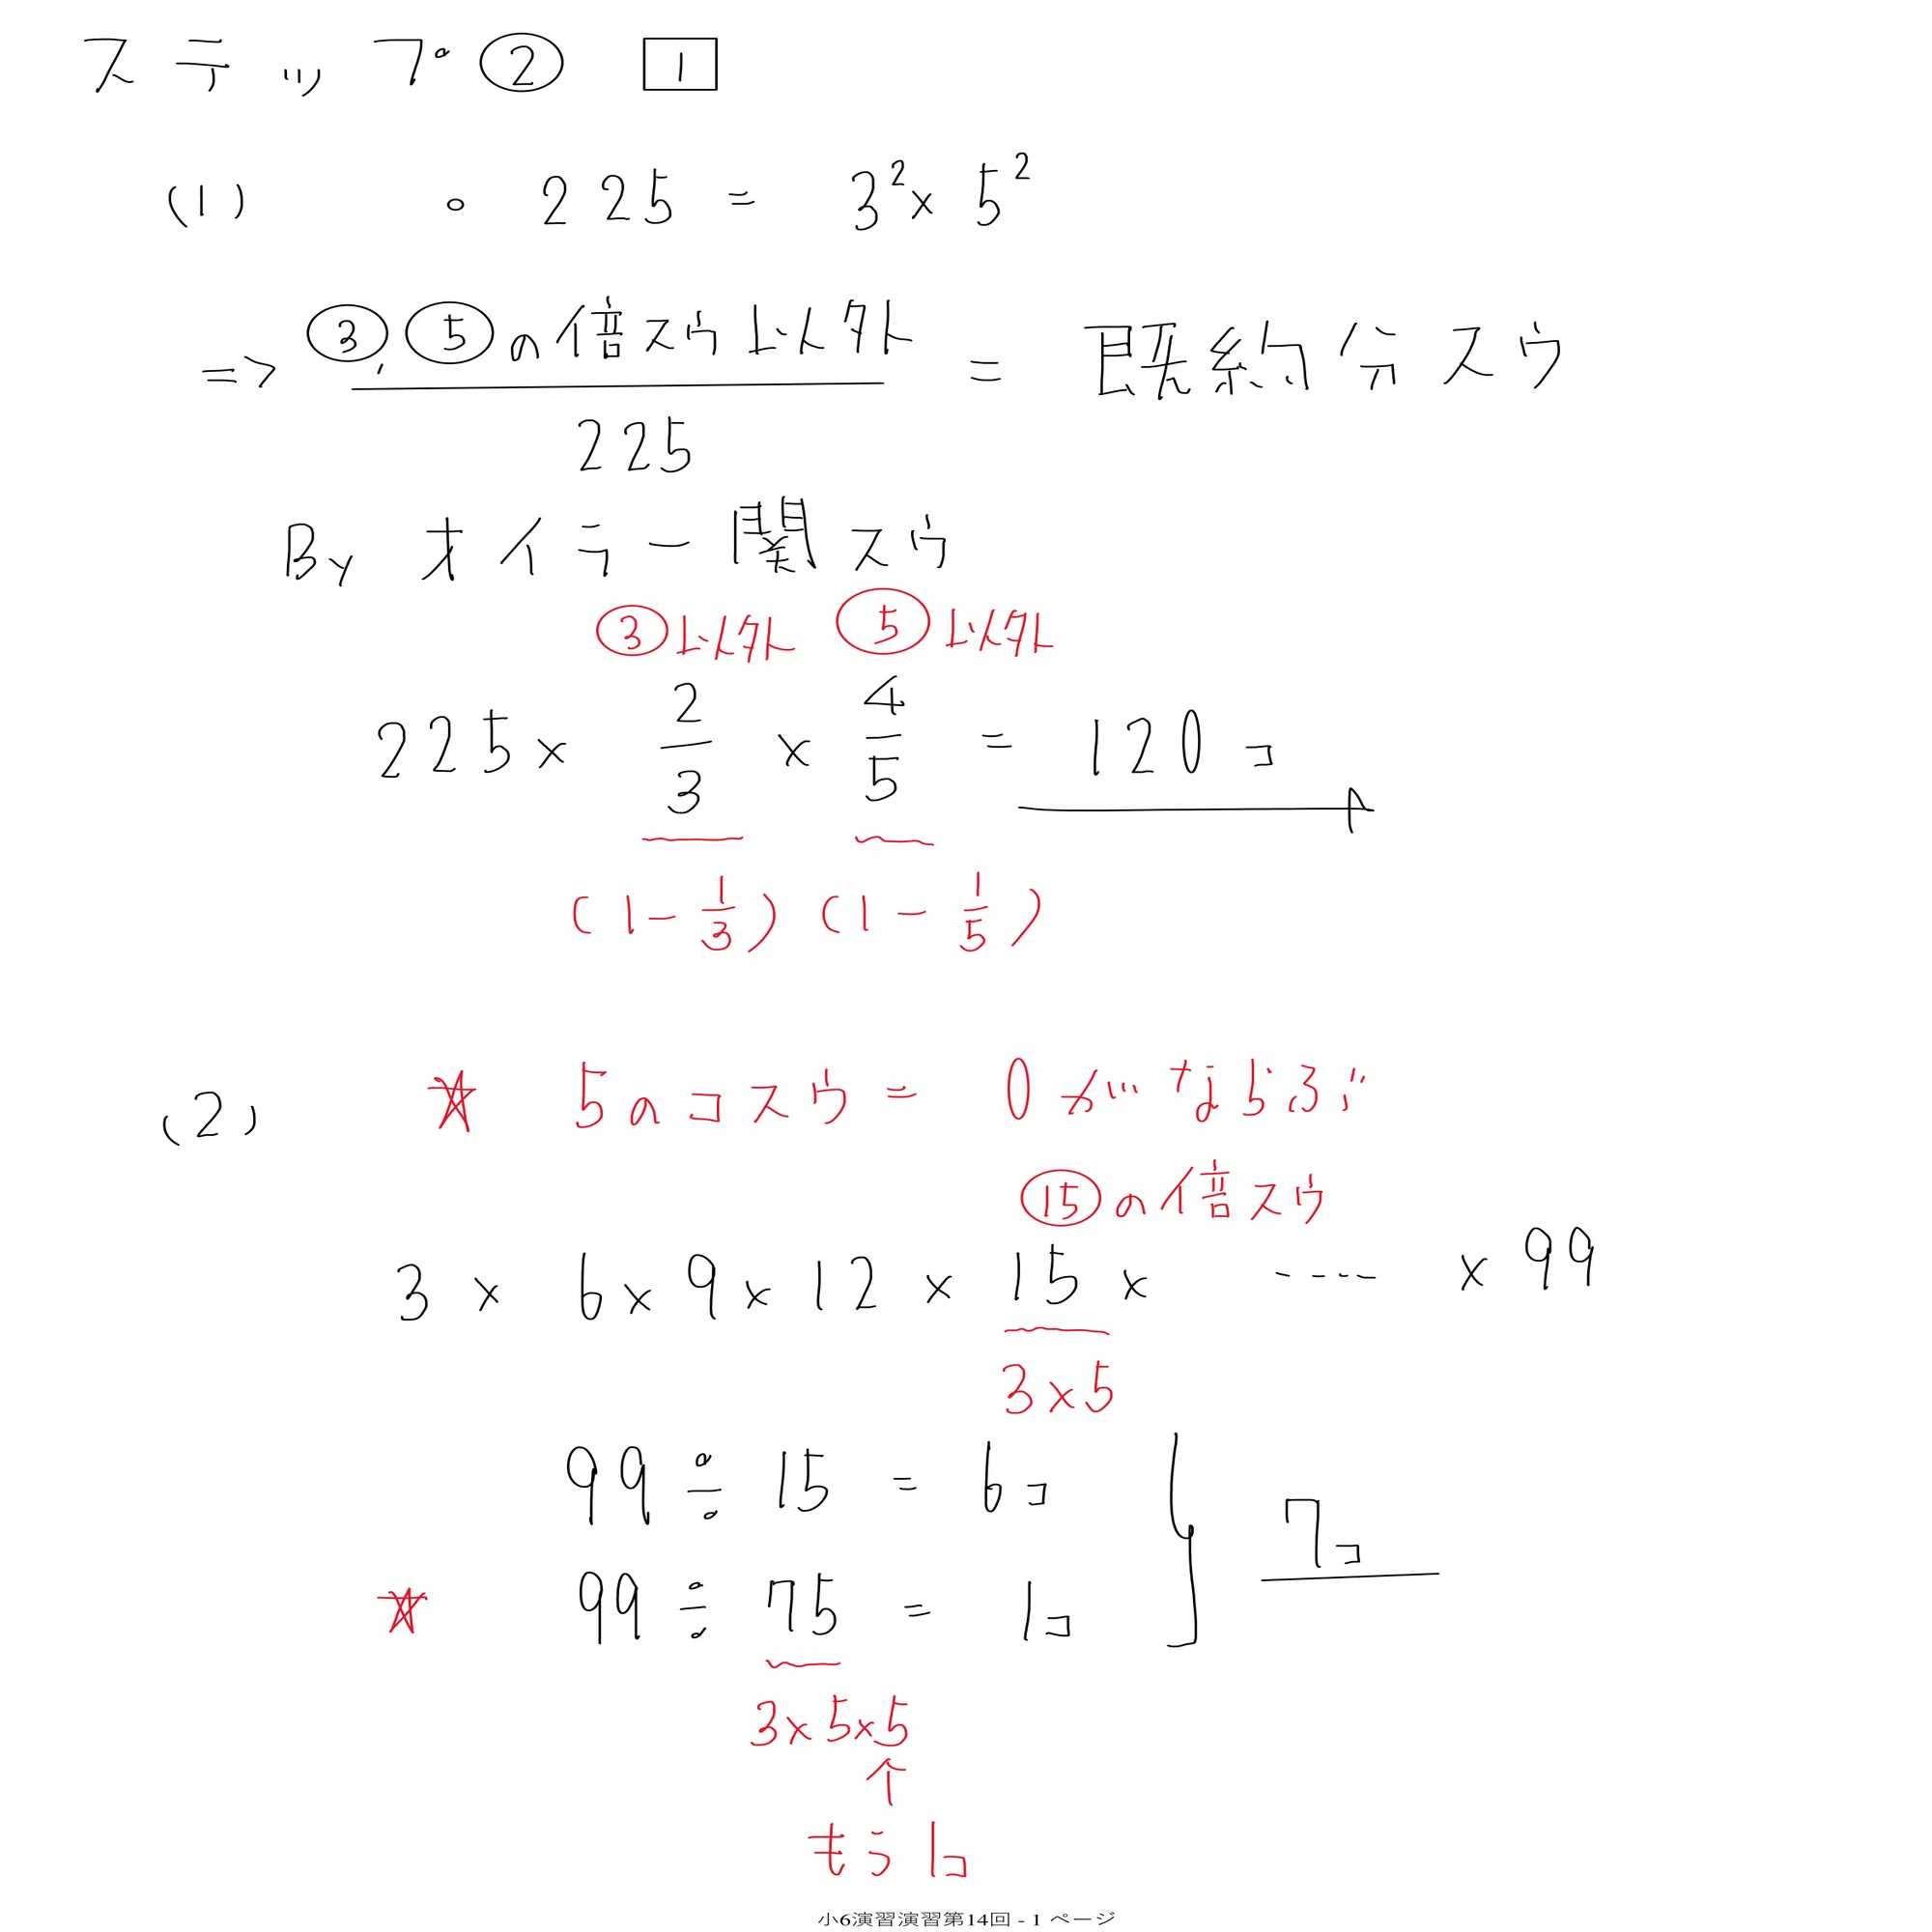 ステップ ② 1
(1) ○ 225 = 3² × 5²
=> ③, ⑤の倍スウ以外 = 既約分スウ
225
By オイラー関スウ
③以外 ⑤以外
225 × 2/3 × 4/5 = 120コ
(1 - 1/3) (1 - 1/5)
(2) ☆ 5のコスウ = 0がならぶ
⑮の倍スウ
3 × 6 × 9 × 12 × 15 × ---- × 99
3×5
99 ÷ 15 = 6コ
7コ
☆ 99 ÷ 75 = 1コ
3×5×5
↑
もう1コ
小6演習演習第14回 - 1 ページ